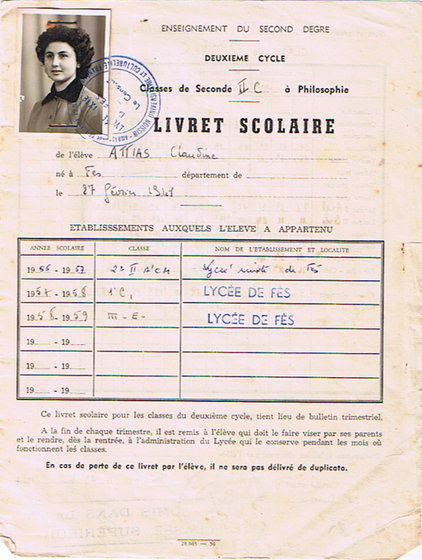 ENSEIGNEMENT DU SECOND DEGRE
DEUXIÈME CYCLE
Classes de Seconde II C à Philosophie
LIVRET SCOLAIRE
de l'élève ATTIAS Claudine
né à Fes département de
le 27 février 1941
ETABLISSSEMENTS AUXQUELS L'ELEVE A APPARTENU
ANNEE SCOLAIRE CLASSE NOM DE L'ETABLISSEMENT ET LOCALITE
1956 - 1957 2e II Lycée mixte de Fès
1957 - 1958 1e C1 LYCÉE DE FÈS
1958 - 1959 LYCÉE DE FÈS
19 - 19
19 - 19
19 - 19
Ce livret scolaire pour les classes du deuxième cycle, tient lieu de bulletin trimestriel.
A la fin de chaque trimestre, il est remis à l'élève qui doit le faire viser par ses parents
et le rendre, dès la rentrée, à l'administration du Lycée qui le conserve pendant les mois où
fonctionnent les classes.
En cas de perte de ce livret par l'élève, il ne sera pas délivré de duplicata.